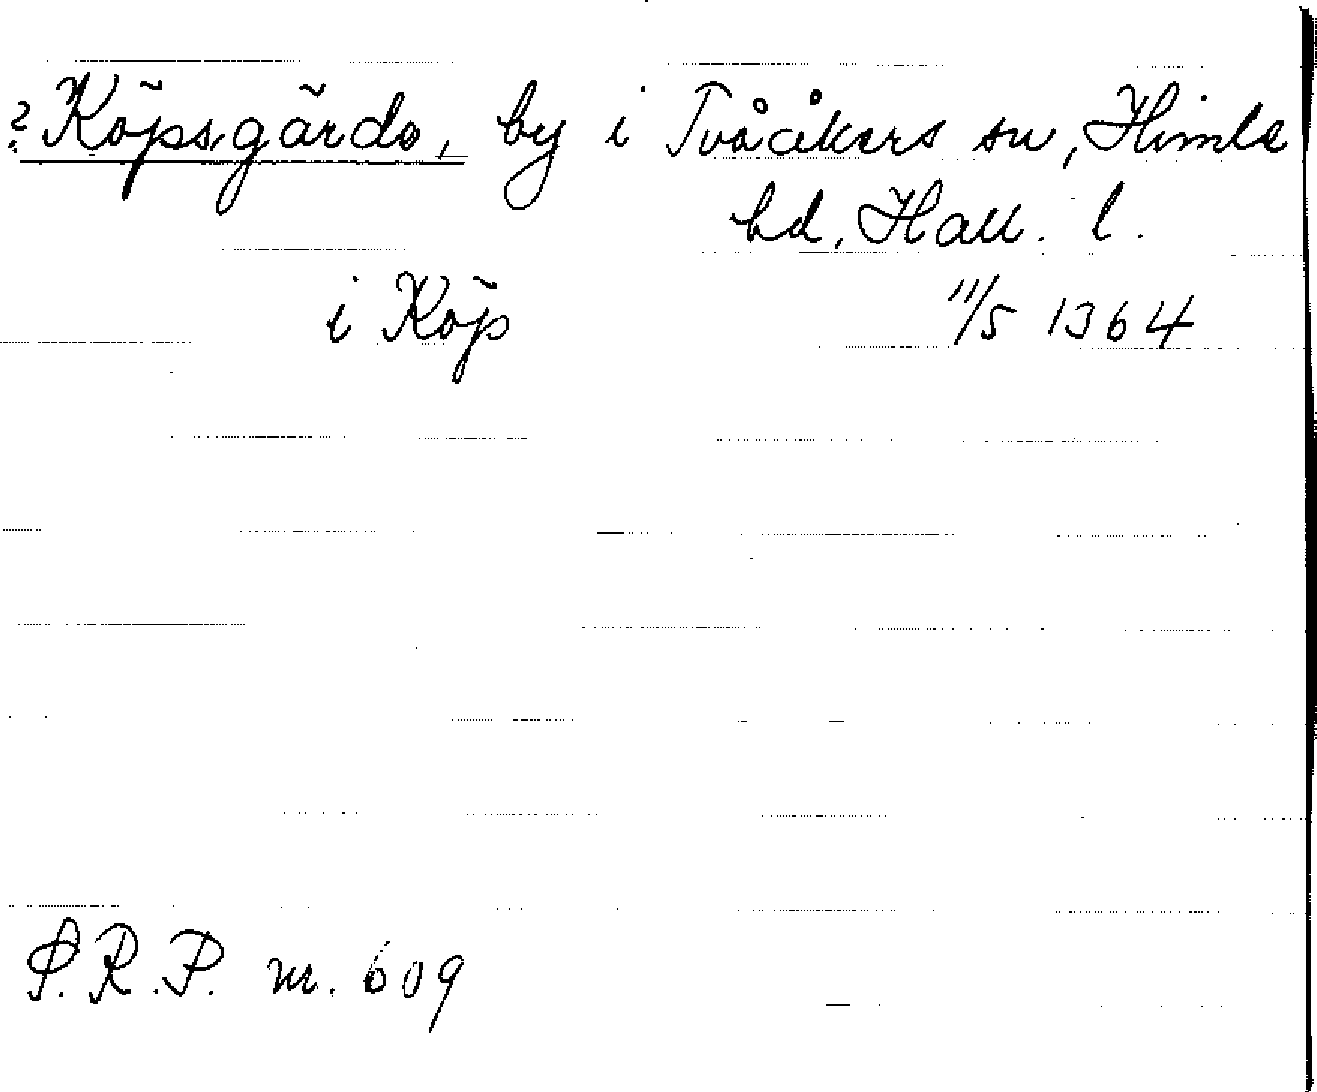 ? Köpsgårde, by i Tvååkers sn, Himle
hd, Hall. l.
i Köp 11/5 1364
S.R.P. nr. 609